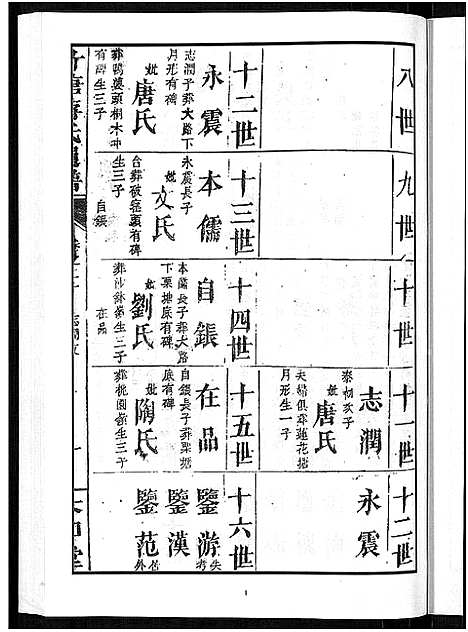 八世
九世
十世
十一世
志潤
泰初次子
妣唐氏
夫婦俱葬蓮花塘
月形生一子
十二世
永震
十二世
永震
志潤子葬大路下
月形有碑
妣唐氏
葬鴨婆頭桐木冲
有碑生三子
十三世
本儒
永震長子
妣文氏
台葬破瘧頭有碑
生三子
自鋹
十四世
自鋹
本儒長子葬大路
下栗塘底有碑
妣劉氏
生三子
在品
十五世
在品
自鋹長子葬栗塘
底有碑
妣陶氏
葬桃園衾生三子
十六世
鑒游
失考
鑒漢
鑒范
外
1